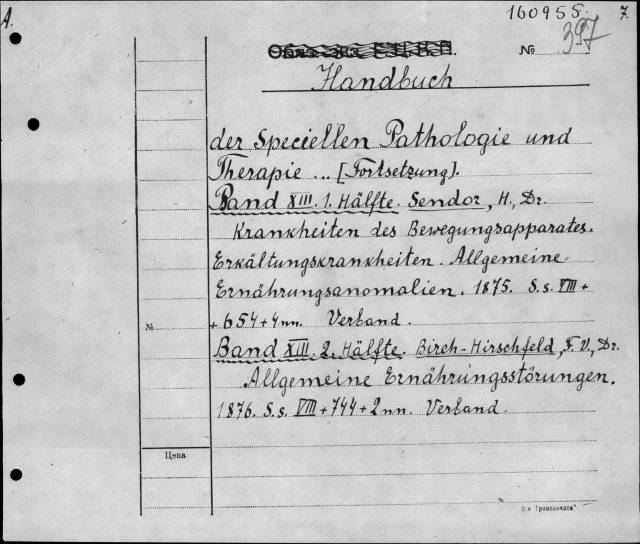 A.
160955.
7.
№ 397
Handbuch
der Speciellen Pathologie und
Therapie ... [Fortsetzung].
Band XIII. 1. Hälfte. Sendor, H., Dr.
Krankheiten des Bewegungsapparates.
Erkältungskrankheiten. Allgemeine
Ernährungsanomalien. 1875. S.s. VIII +
+ 654 + 4 nn. Verband.
№
Band XIII. 2. Hälfte. Birch-Hirschfeld, F. V., Dr.
Allgemeine Ernährungsstörungen.
1876. S.s. VIII + 744 + 2 nn. Verband.
Цена